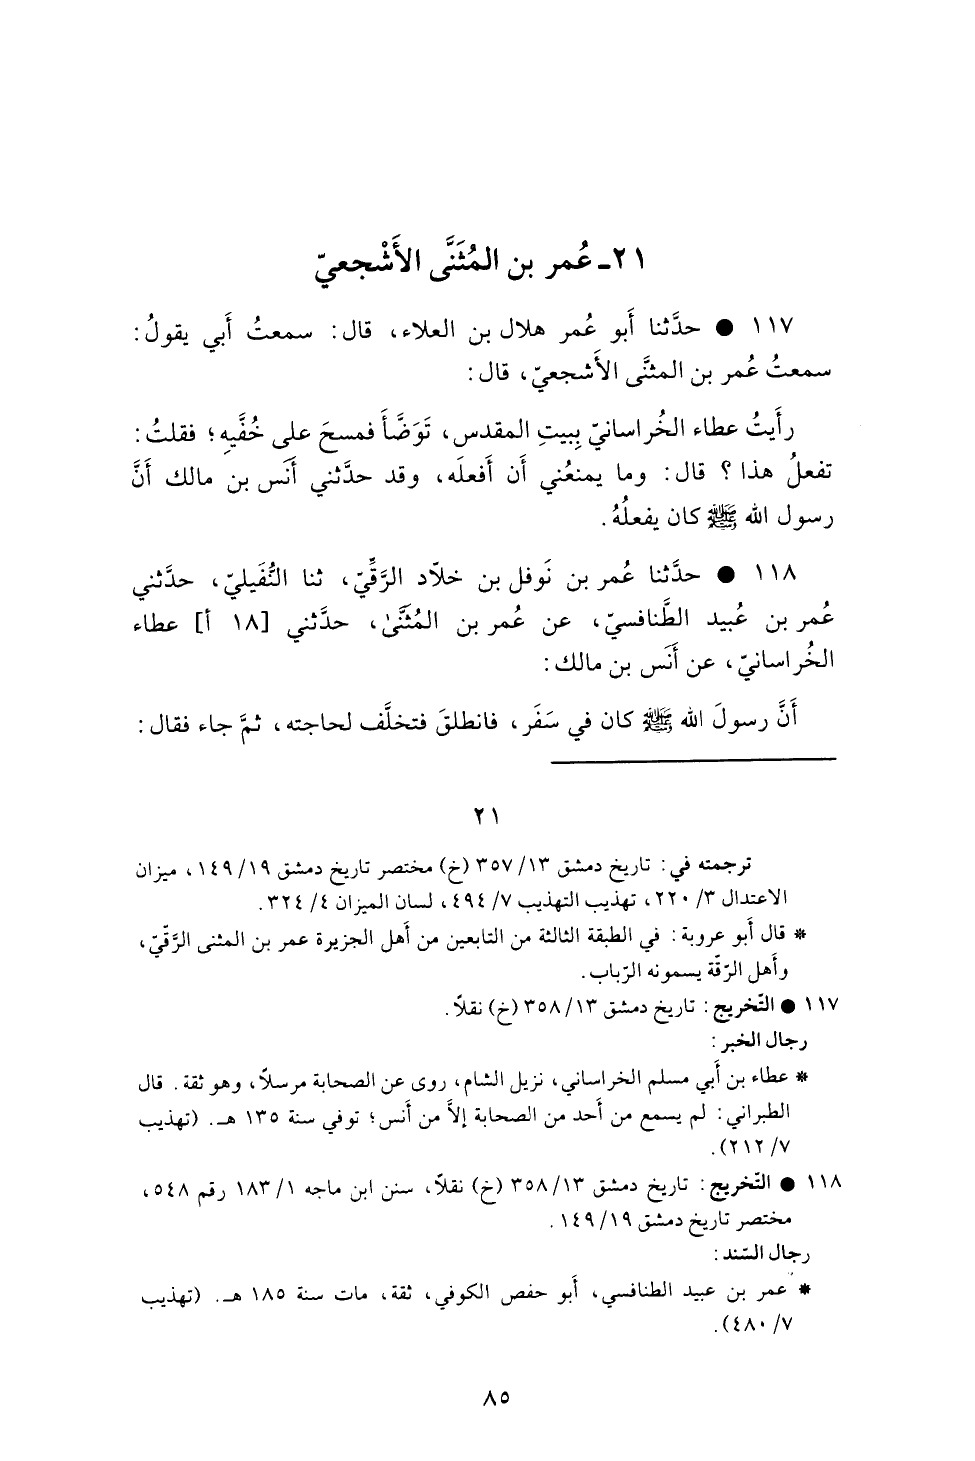 ٢١ـ عُمر بن المُثَنَّى الأَشْجعيّ
١١٧ ● حدَّثنا أَبو عُمر هلال بن العلاء، قال: سمعتُ أَبي يقولُ:
سمعتُ عُمر بن المثنَّى الأَشجعيّ، قال:
رأَيتُ عطاء الخُراسانيّ بِبيتِ المقدس، تَوَضَّأَ فمسحَ على خُفَّيهِ؛ فقلتُ:
تفعلُ هذا؟ قال: وما يمنعُني أَن أَفعلَه، وقد حدَّثني أَنَس بن مالك أَنَّ
رسول الله ﷺ كان يفعلُهُ.
١١٨ ● حدَّثنا عُمر بن نَوفل بن خلاّد الرَّقِّيّ، ثنا النُّفَيليّ، حدَّثني
عُمر بن عُبيد الطَّنافسيّ، عن عُمر بن المُثَنَّىٰ، حدَّثني [١٨ أ] عطاء
الخُراسانيّ، عن أَنَس بن مالك:
أَنَّ رسولَ الله ﷺ كان في سَفَر، فانطلقَ فتخلَّف لحاجته، ثمَّ جاء فقال:
٢١
ترجمته في: تاريخ دمشق ١٣/ ٣٥٧ (خ) مختصر تاريخ دمشق ١٩/ ١٤٩، ميزان
الاعتدال ٣/ ٢٢٠، تهذيب التهذيب ٧/ ٤٩٤، لسان الميزان ٤/ ٣٢٤.
* قال أَبو عروبة: في الطبقة الثالثة من التابعين من أَهل الجزيرة عمر بن المثنى الرَّقّيّ،
وأَهل الرّقّة يسمونه الرّباب.
١١٧ ● التّخريج: تاريخ دمشق ١٣/ ٣٥٨ (خ) نقلاً.
رجال الخبر:
* عطاء بن أَبي مسلم الخراساني، نزيل الشام، روى عن الصحابة مرسلاً، وهو ثقة. قال
الطبراني: لم يسمع من أَحد من الصحابة إلاَّ من أَنس؛ توفي سنة ١٣٥ هـ. (تهذيب
٧/ ٢١٢).
١١٨ ● التّخريج: تاريخ دمشق ١٣/ ٣٥٨ (خ) نقلاً، سنن ابن ماجه ١/ ١٨٣ رقم ٥٤٨،
مختصر تاريخ دمشق ١٩/ ١٤٩.
رجال السّند:
* عمر بن عبيد الطنافسي، أَبو حفص الكوفي، ثقة، مات سنة ١٨٥ هـ. (تهذيب
٧/ ٤٨٠).
٨٥